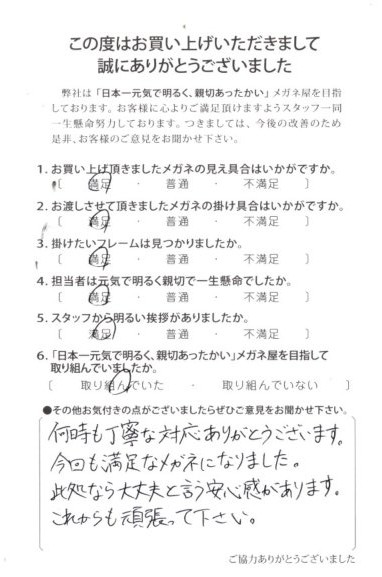 この度はお買い上げいただきまして
誠にありがとうございました
弊社は「日本一元気で明るく、親切あったかい」メガネ屋を目指
しております。お客様に心よりご満足頂けますようスタッフ一同
一生懸命努力しております。つきましては、今後の改善のため
是非、お客様のご意見をお聞かせ下さい。
1. お買い上げ頂きましたメガネの見え具合はいかがですか。
〔 満足 ・ 普通 ・ 不満足 〕
2. お渡しさせて頂きましたメガネの掛け具合はいかがですか。
〔 満足 ・ 普通 ・ 不満足 〕
3. 掛けたいフレームは見つかりましたか。
〔 満足 ・ 普通 ・ 不満足 〕
4. 担当者は元気で明るく親切で一生懸命でしたか。
〔 満足 ・ 普通 ・ 不満足 〕
5. スタッフから明るい挨拶がありましたか。
〔 満足 ・ 普通 ・ 不満足 〕
6. 「日本一元気で明るく、親切あったかい」メガネ屋を目指して
取り組んでいましたか。
〔 取り組んでいた ・ 取り組んでいない 〕
●その他お気付きの点がございましたらぜひご意見をお聞かせ下さい。
何時も丁寧な対応ありがとうございます。
今回も満足なメガネになりました。
此処なら大丈夫と言う安心感があります。
これからも頑張って下さい。
ご協力ありがとうございました